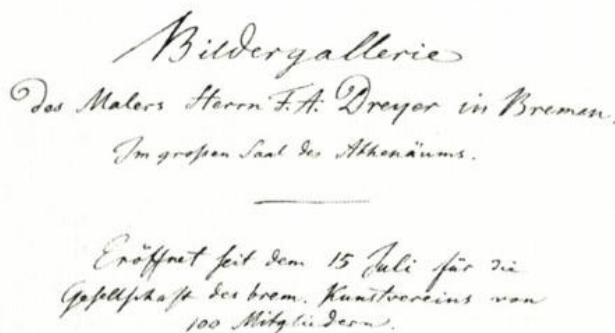 Bildergallerie
des Malers Herrn F. A. Dreyer in Bremen.
Im großen Saal des Athenäums.
Eröffnet seit dem 15 Juli für die
Gesellschaft des brem. Kunstvereins von
100 Mitgliedern.